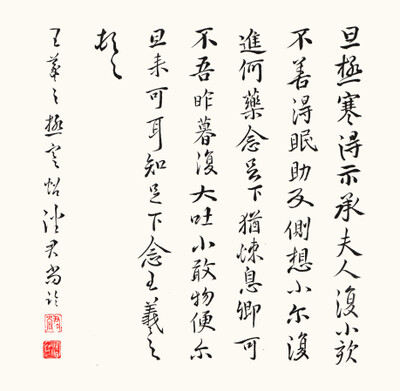 旦極寒得示承夫人復小欬
不善得眠助反側想小尔復
進何藥念足下猶悚息卿可
不吾昨暮復大吐小敢物便尔
旦来可耳知足下念王羲之
頓首
王羲之極寒帖